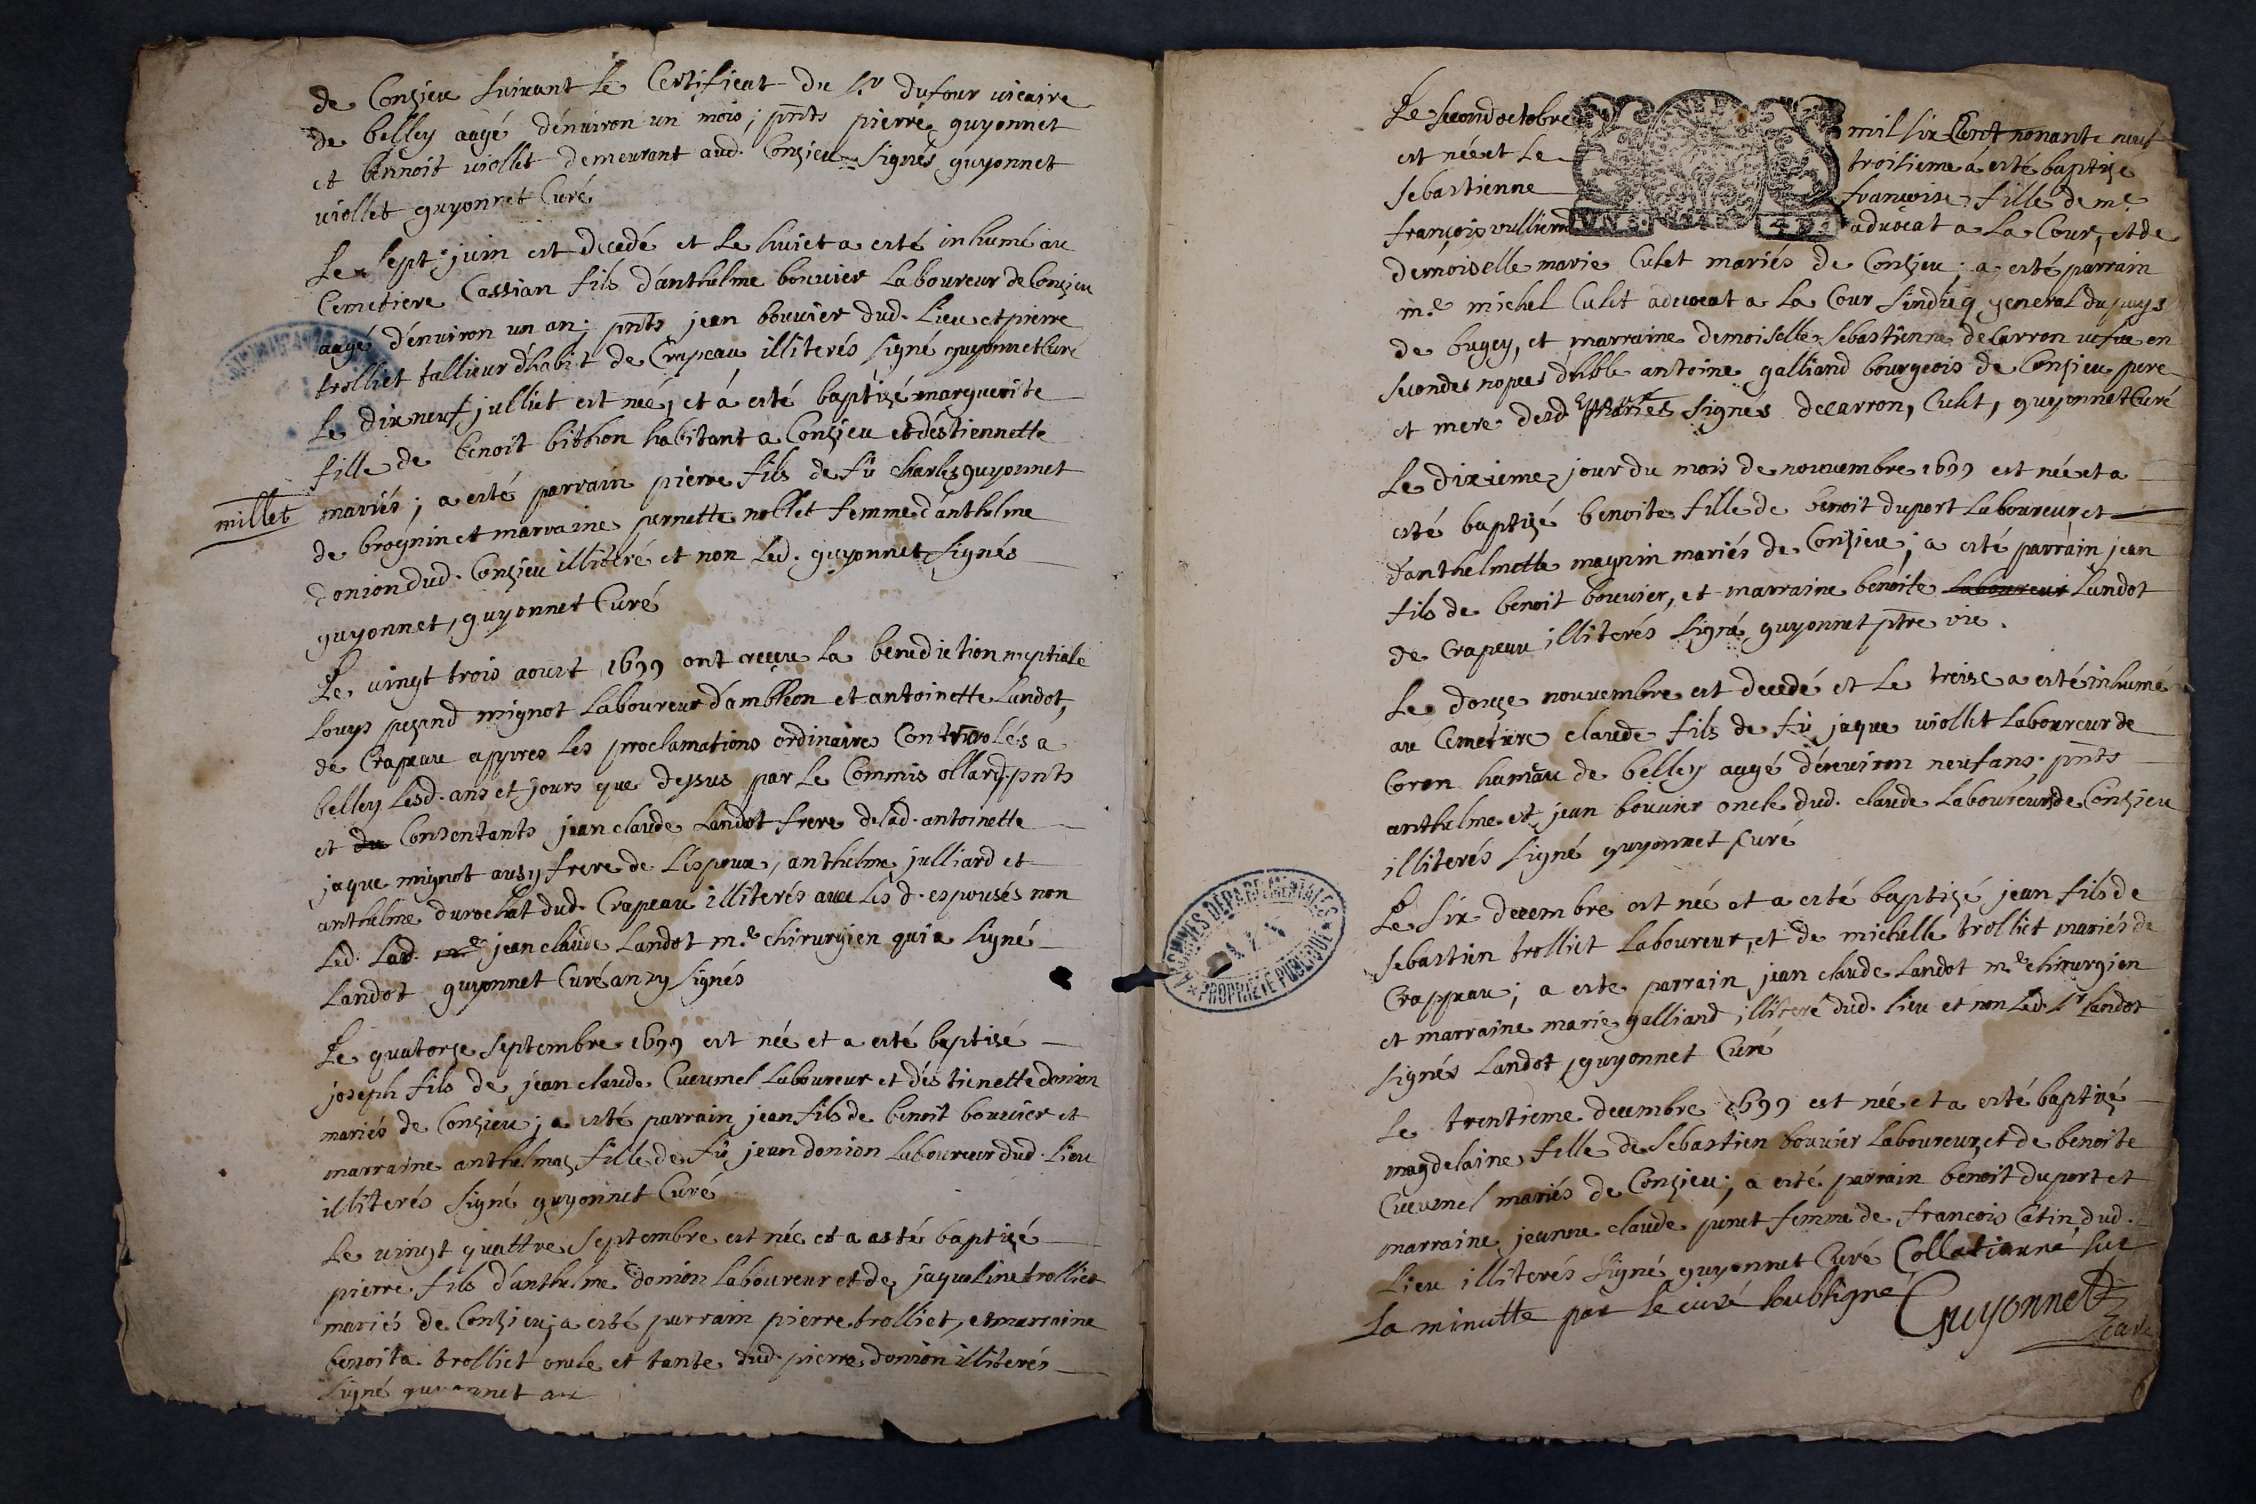 de Conzieu suivant le Certificat du Sr dufour vicaire
de belley aagé d'environ un mois; pnts pierre guyonnet
et bennoit viollet demeurant aud. Conzieu signés guyonnet
viollet guyonnet Curé
Le sept juin est decedé et le huict a esté inhumé au
Cemetiere Cassian fils d'anthelme bouvier Laboureur de Conzieu
aagé d'environ un an; pnts jean bouvier dud. Lieu et pierre
trolliet tallieur d'habit de Crapeau illiterés signé guyonnet Curé
Le dix neuf julliet est née, et á esté baptizé marguerite
fille de benoit bithon habitant a Conzieu et d'estiennette
millet
mariés; a esté parrain pierre fils de fû charles guyonnet
de brognin et marraine pernette nollet femme d'anthelme
donion dud. Conzieu illiteré et non led. guyonnet signés
guyonnet, guyonnet Curé
Le vingt trois aoust 1699 ont receu la benediction nuptiale
Louys pezand mignot Laboureur d'ambleon et antoinette Landot,
de Crapeau appres les proclamations ordinaires Controlés a
belley lesd. ans et jours que dessus par le Commis ollard, pnts
et du Consentants jean claude Landot frere delad. antoinette
jaque mignot ausy frere de L'espoux, anthelme julliard et
anthelme durochat dud. Crapeau illiterés avec les d. espousés non
Led. Lad. me jean claude Landot m.e chirurgien qui a signé
Landot guyonnet Curé ansy signés
Le quatorze septembre 1699 est née et a esté baptisé
joseph fils de jean claude Cueumel Laboureur et d'estienette donion
mariés de Conzieu; a esté parrain jean fils de benoit bouvier et
marraine anthelmaz fille de fû jean donion Laboureur dud. Lieu
illiterés signé guyonnet Curé
Le vingt quattre septembre est née et a asté baptizé
pierre fils d'anthelme donion laboureur et de jaqueline trolliet
mariés de Conzieu; a esté parrain pierre trolliet, et marraine
benoita trolliet oncle et tante dud. pierre donion illiterés
signé guyonnet
Le second octobre mil six Cent nonante neuf
est née et le troisieme á esté baptizé
sebastienne françoise fille de me
françois vulliend advocat a La Cour, et de
demoiselle marie Culet mariés de Conzieu; a esté parrain
m.e michel Culet advocat a La Cour sindicq general du pays
de bugey, et marraine demoiselle sebastienne decarron vefve en
secondes nopces d'hble antoine galliand bourgeois de Conzieu pere
et mere desd mariés signés decarron, Culet, guyonnet Curé
Le dixieme jour du mois de nouvembre 1699 est née et a
esté baptizé benoite fille de benoit duport Laboureur et
d'anthelmette magnin mariés de Conzieu; a esté parrain jean
fils de benoit bouvier, et marraine benoite Laboureur Landot
de Crapeau illiterés signé guyonnet ptre vic.
Le douze nouvembre est decedé et le treise a esté inhumé
au Cemetiere claude fils de fû jaque viollet Laboureur de
Coron hameau de belley aagé d'environ neuf ans. pnts
anthelme et jean bouvier oncle dud. claude Laboureurs de Conzieu
illiterés signé guyonnet Curé
Le six decembre est née et a esté baptizé jean fils de
sebastien trolliet Laboureur, et de michelle trolliet mariés de
Crappeau; a esté parrain jean claude Landot m.e chirurgien
et marraine marie galliand illiteré dud. lieu et non led. Sr Landot
signés Landot, guyonnet Curé
Le trentieme decembre 1699 est née et a esté baptizé
magdelaine fille de sebastien bouvier Laboureur, et de benoite
Cueumel mariés de Conzieu; a esté parrain benoit duport et
marraine jeanne claude punet femme de françois Catin dud.
Lieu illiterés signé guyonnet Curé Collationné sur
La minutte par le curé soubsigné Guyonnet
Curé
ARCHIVES DÉPARTEMENTALES
PROPRIÉTÉ PUBLIQUE